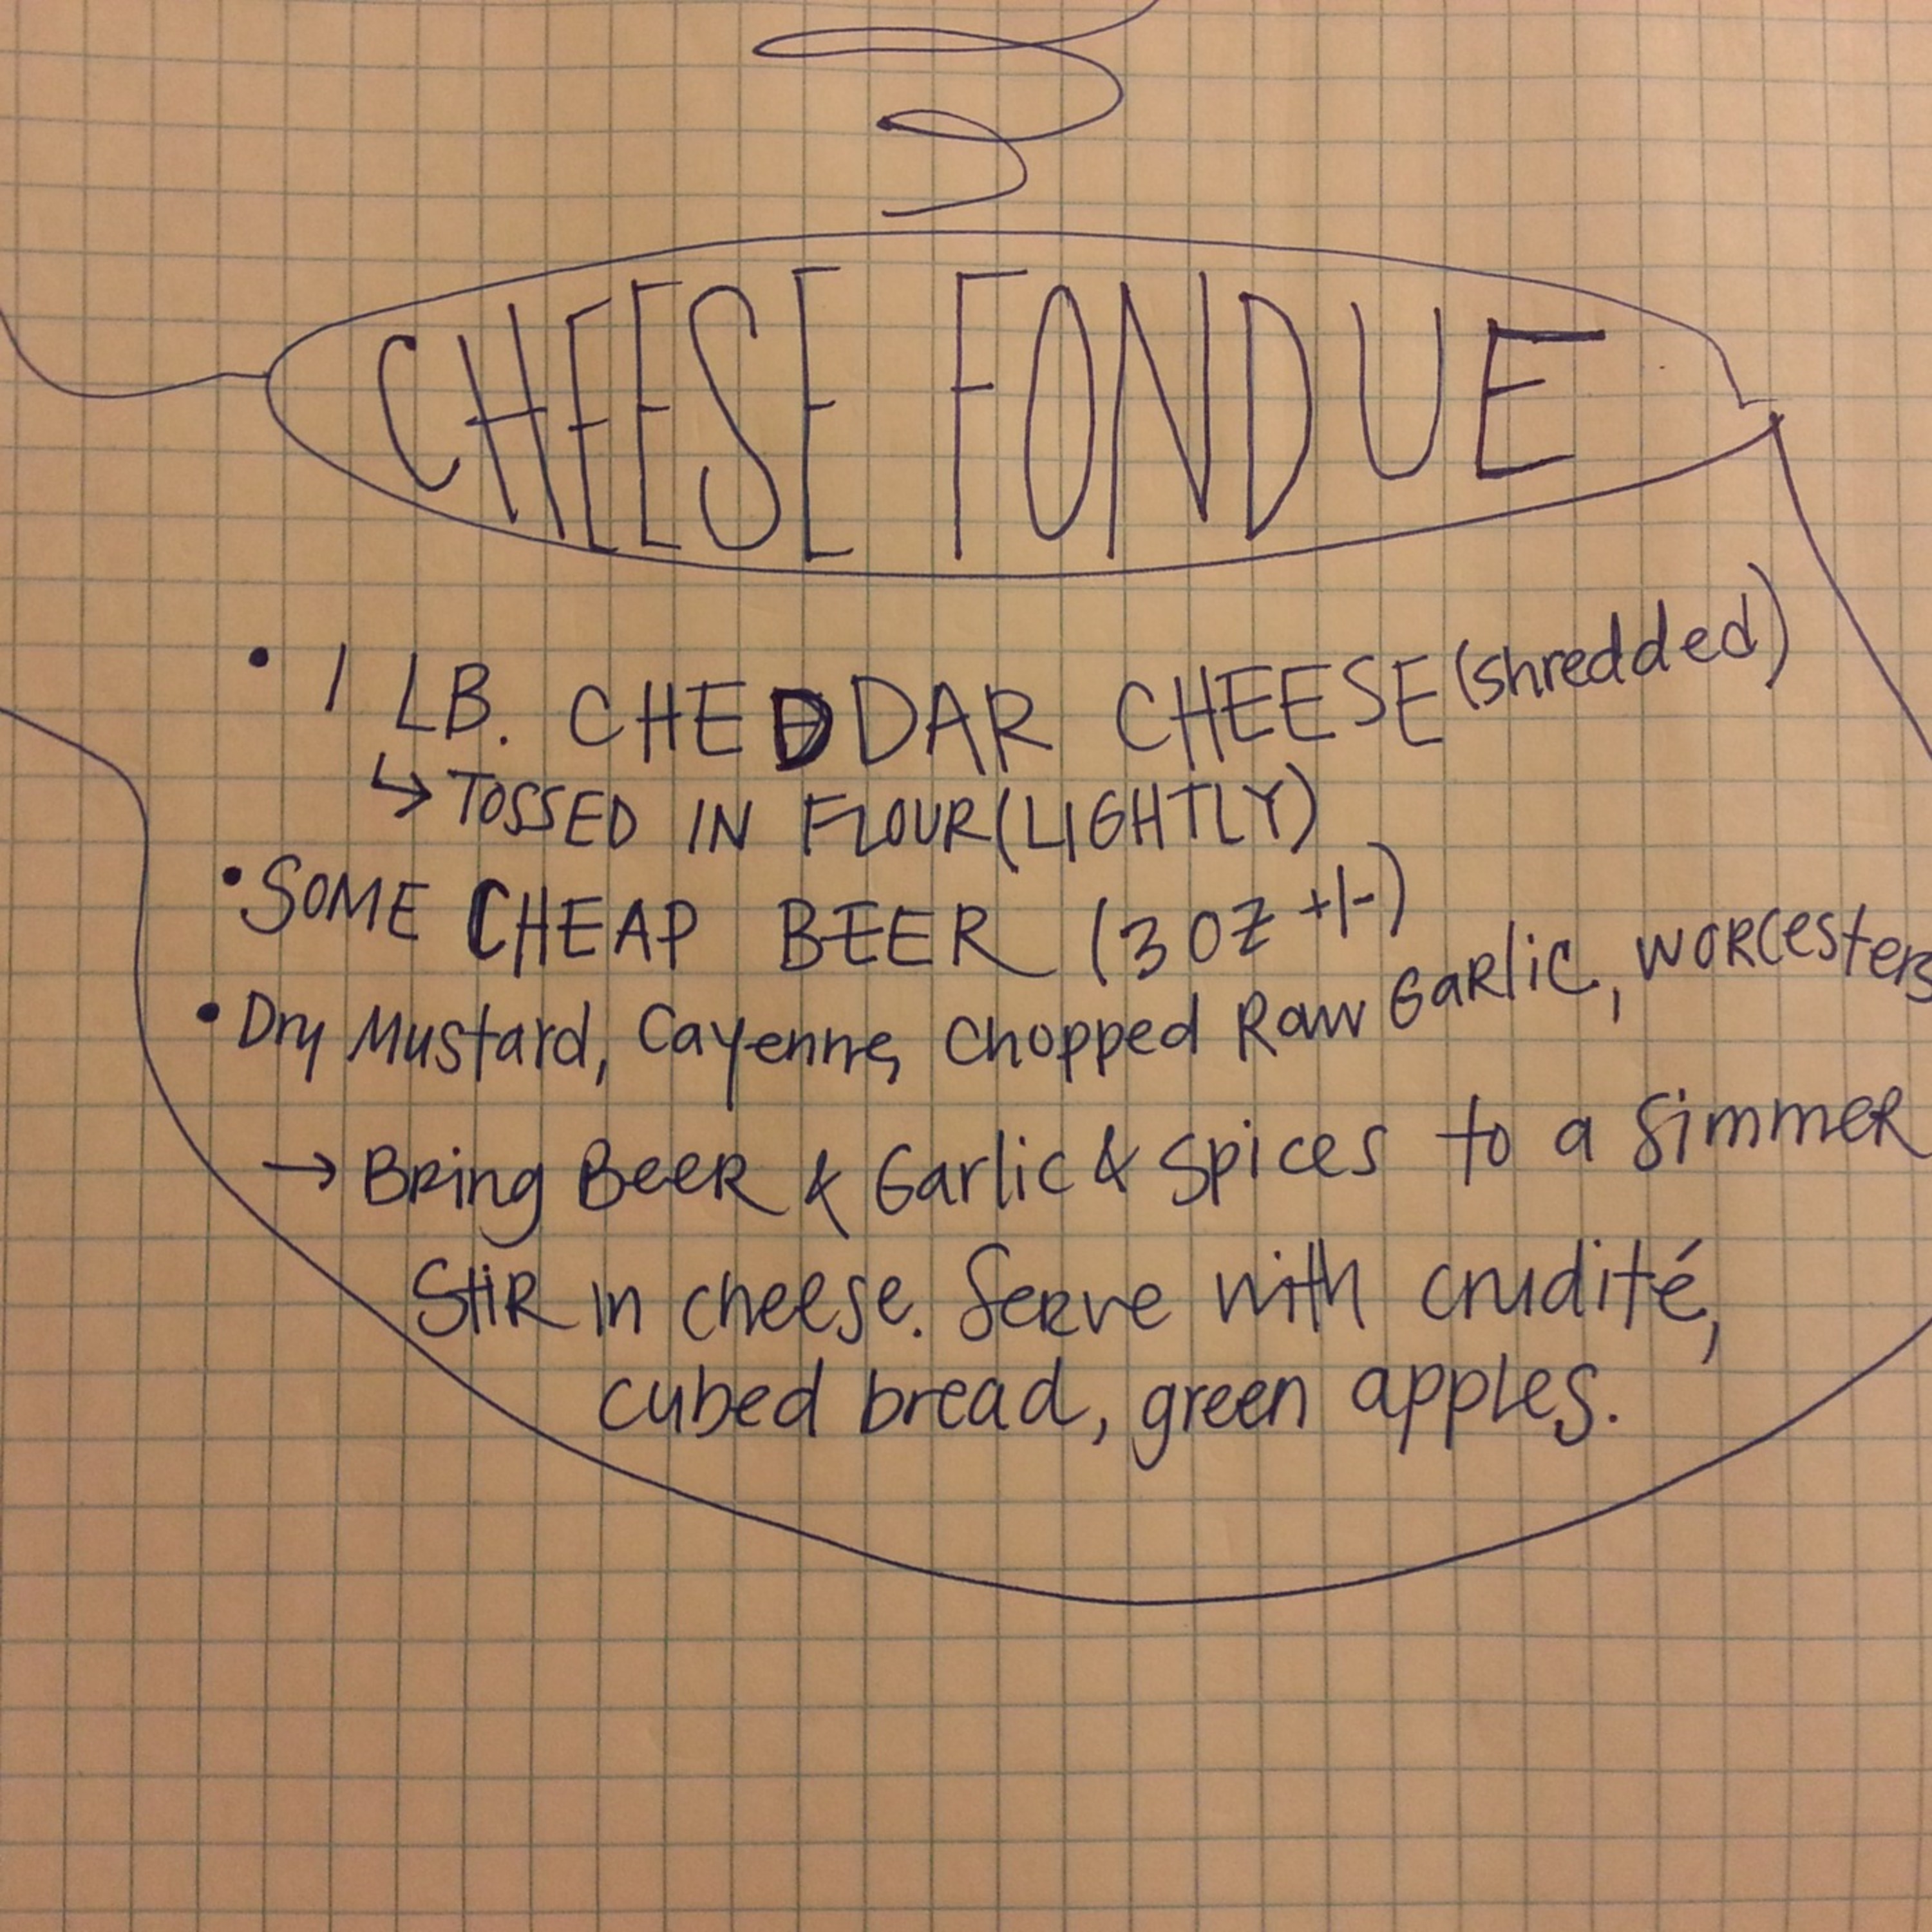 CHEESE FONDUE
• 1 LB. CHEDDAR CHEESE (shredded)
↳ TOSSED IN FLOUR (LIGHTLY)
• SOME CHEAP BEER (3 OZ +/-)
• Dry Mustard, Cayenne, Chopped Raw GARlic, WORCesters
→ BRing BeeR & Garlic & Spices to a SimmeR
StiR in cheese. SeRve with crudité,
cubed bread, green apples.